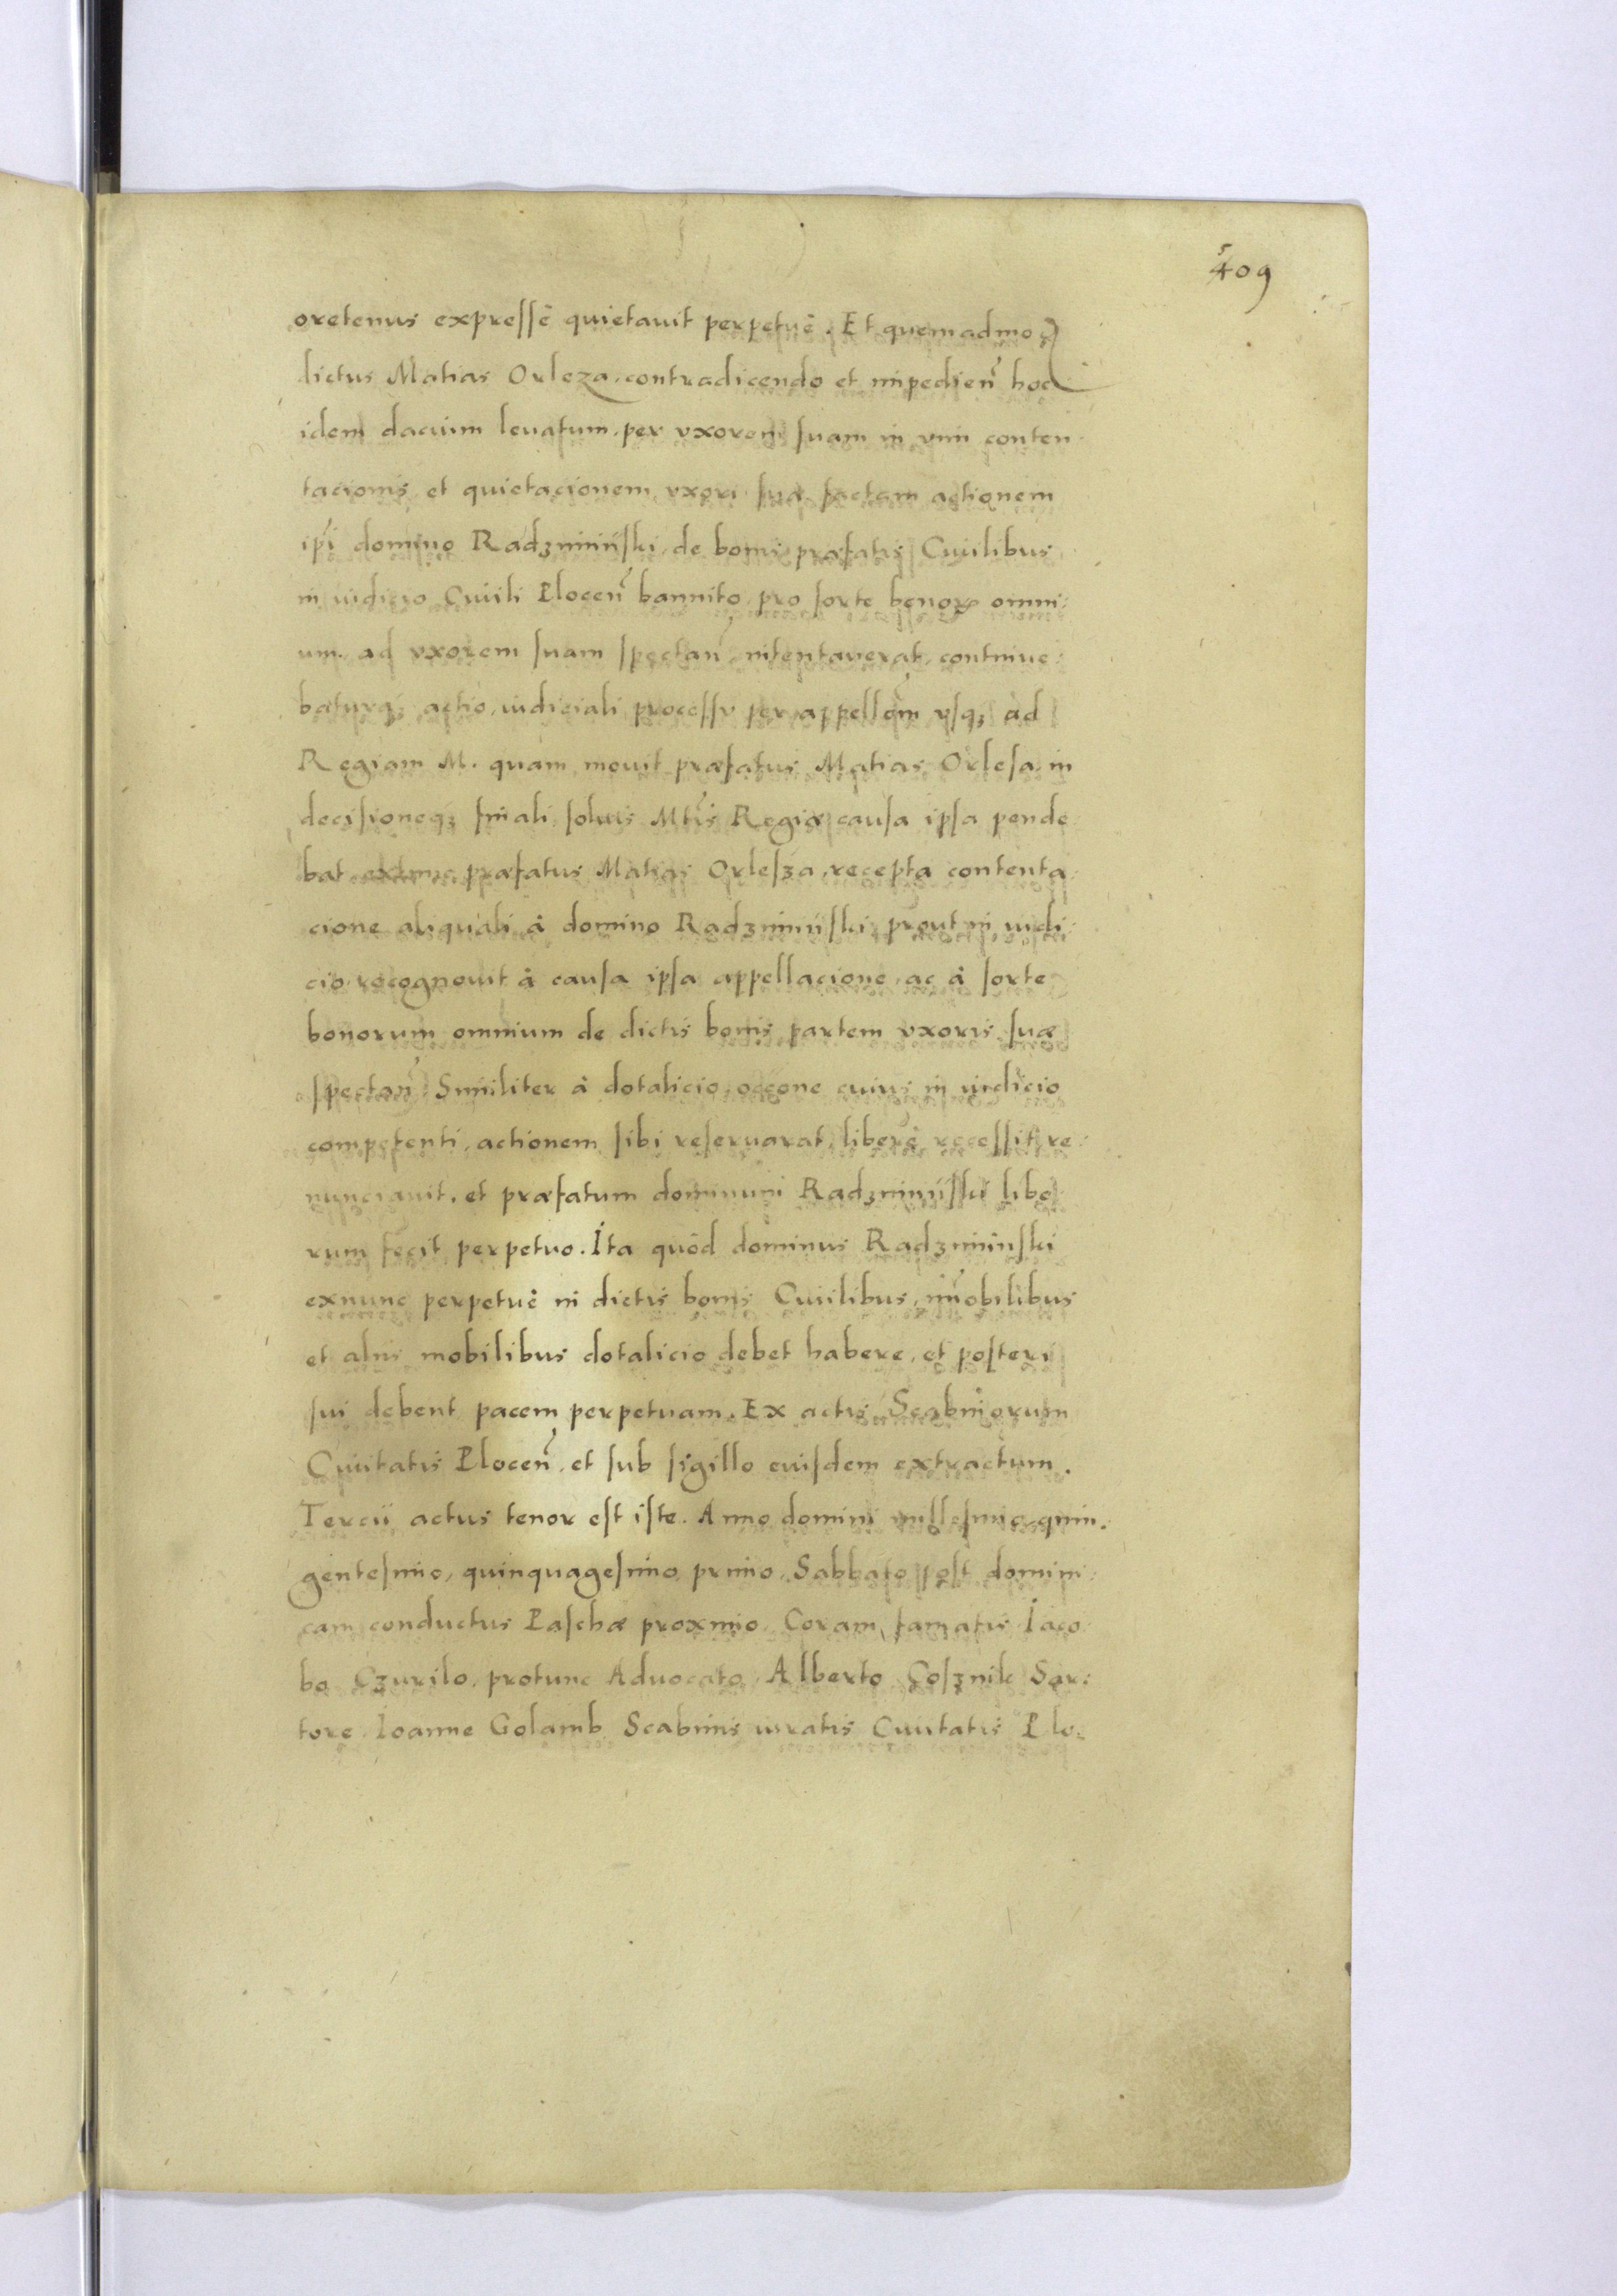 409
oretenus expressè quietauit perpetuè. Et quemadmo
dictus Matias Orleza, contradicendo et impedien̄ hoc
idem dacium leuatum, per vxorem suam in vim conten
tacionis et quietacionem vxori suæ factam actionem
ip̄i domino Radzmiński, de bonis præfatis Ciuilibus
in iudicio Ciuili Plocen̄ bannito, pro sorte bonoꝝ omni:
um, ad vxorem suam spectan̄, intentauerat, continue:
baturq; actio, iudiciali processu per appellōm vsq; ad
Regiam M. quam mouit præfatus Matias Orlesa, in
decisioneq; finali, solius Mtis̄ Regiæ causa ipsa pende
bat præfatus Matias Orlesza, recepta contenta
cione aliquali à domino Radzmiński, prout in iudi
cio recognouit à causa ipsa appellacione, ac à sorte
bonorum omnium de dictis bonis partem vxoris suæ
spectan̄. Similiter à dotalicio, occōne cuius in iudicio
competenti, actionem sibi reseruarat, liberè recessit re:
nunciauit, et præfatum dominum Radzmiński libe
rum fecit perpetuo. Ita quòd dominus Radzmiński
exnunc perpetuè in dictis bonis Ciuilibus, im̄obilibus
et aliis mobilibus dotalicio debet habere, et posteri
sui debent pacem perpetuam. Ex actis Scabinorum
Ciuitatis Plocen̄, et sub sigillo euisdem extractum.
Tercii actus tenor est iste. Anno domini millesimo, quin:
gentesimo, quinquagesimo primo, Sabbato post domini:
cam conductus Paschæ proximo. Coram, famatis Iaco
bo Czurilo, protunc Aduocato, Alberto Gosznik Sar:
tore, Ioanne Golamb Scabinis iuratis Ciuitatis Plo: